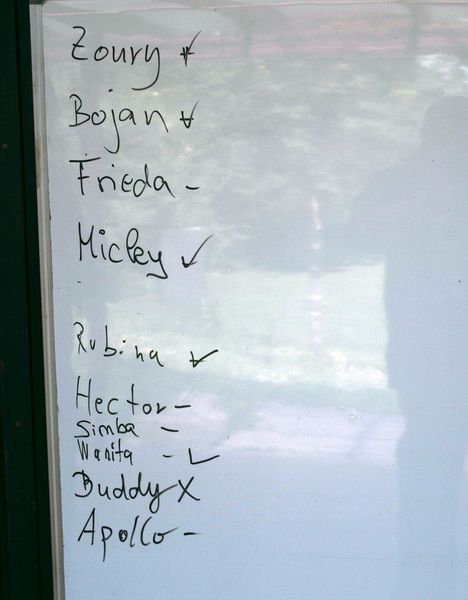 Zoury ✓
Bojan ✓
Frieda -
Mickey ✓
Rubina ✓
Hector -
Simba -
Wanita - ✓
Buddy X
Apollo -